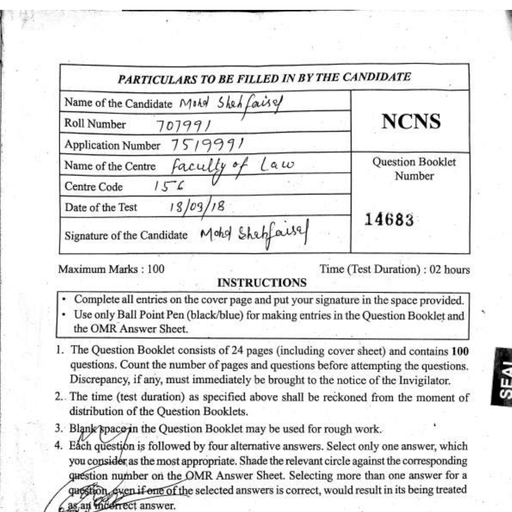 PARTICULARS TO BE FILLED IN BY THE CANDIDATE
Name of the Candidate Mohd Shehfaisel
Roll Number 707991
Application Number 7519991
Name of the Centre faculty of Law
Centre Code 156
Date of the Test 18/09/18
Signature of the Candidate Mohd Shehfaisel
NCNS
Question Booklet
Number
14683
Maximum Marks : 100 Time (Test Duration) : 02 hours
INSTRUCTIONS
• Complete all entries on the cover page and put your signature in the space provided.
• Use only Ball Point Pen (black/blue) for making entries in the Question Booklet and
the OMR Answer Sheet.
1. The Question Booklet consists of 24 pages (including cover sheet) and contains 100
questions. Count the number of pages and questions before attempting the questions.
Discrepancy, if any, must immediately be brought to the notice of the Invigilator.
2. The time (test duration) as specified above shall be reckoned from the moment of
distribution of the Question Booklets.
3. Blank space in the Question Booklet may be used for rough work.
4. Each question is followed by four alternative answers. Select only one answer, which
you consider as the most appropriate. Shade the relevant circle against the corresponding
question number on the OMR Answer Sheet. Selecting more than one answer for a
question, even if one of the selected answers is correct, would result in its being treated
as an incorrect answer.
SEAL